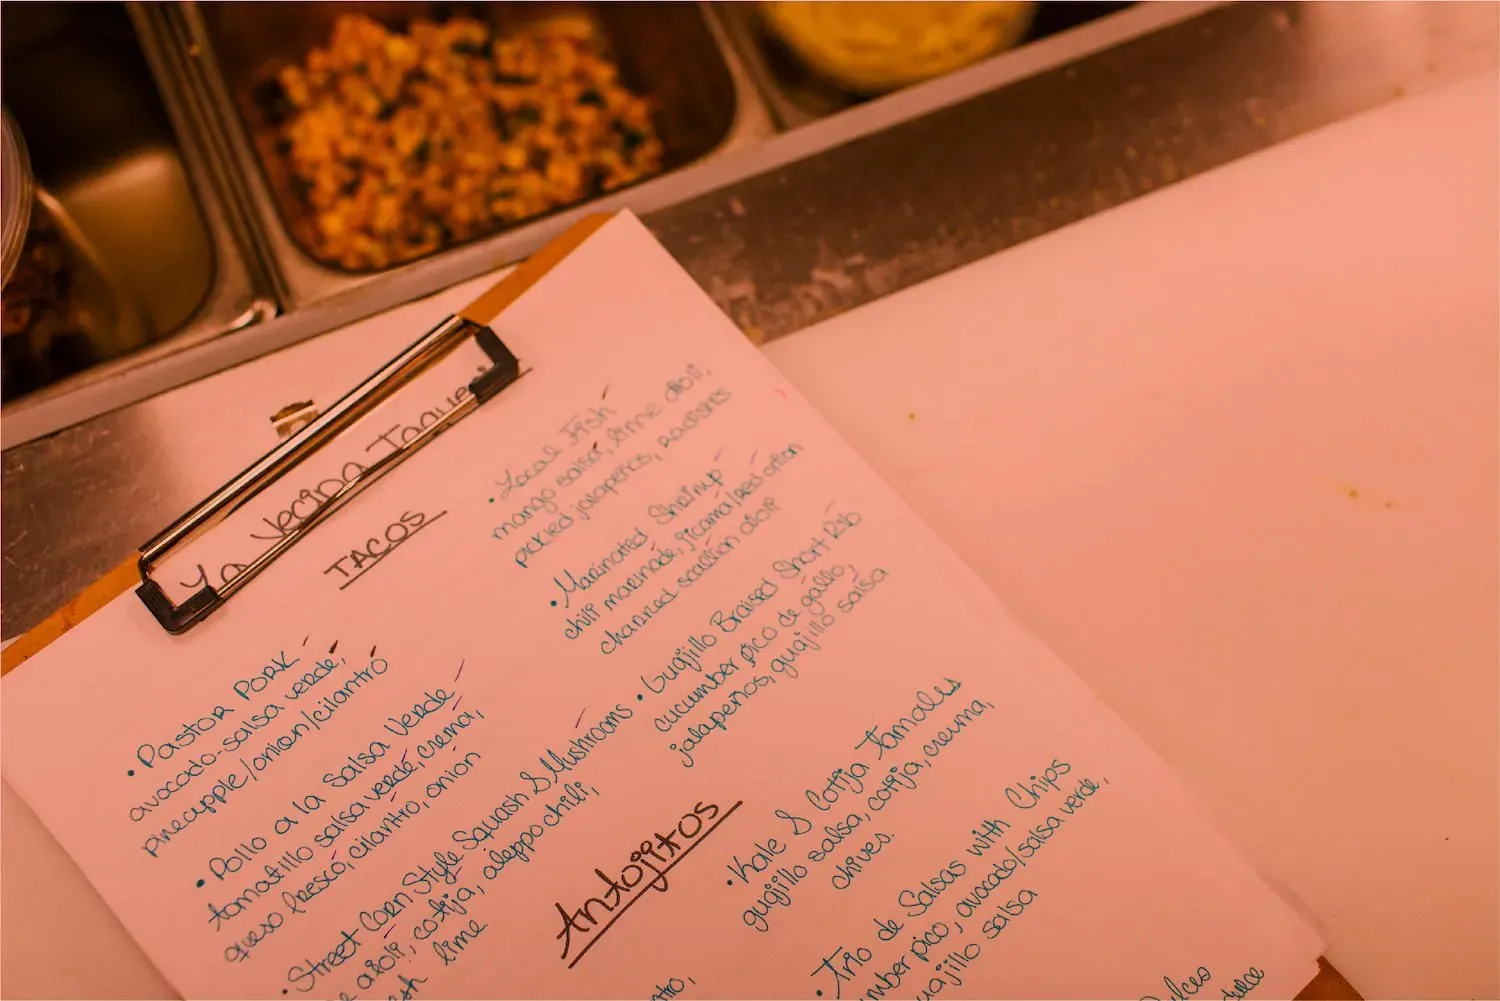 La Vecina Taquer
TACOS
• Pastor Pork
avocado-salsa verde,
pineapple/onion/cilantro
• Pollo a la Salsa Verde
tomatillo salsa verde, crema,
queso fresco, cilantro, onion
• Street Corn Style Squash & Mushrooms
aioli, cotija, aleppo chili,
lime
• Local Fish
mango salsa, lime aioli,
pickled jalapeños, radishes
• Marinated Shrimp
chili marinade, jicama/red onion
charred scallion aioli
• Guajillo Braised Short Rib
cucumber pico de gallo,
jalapeños, guajillo salsa
Antojitos
• Kale & Cotija Tamales
guajillo salsa, cotija, crema,
chives.
• Trio de Salsas with Chips
pico, avocado/salsa verde,
salsa